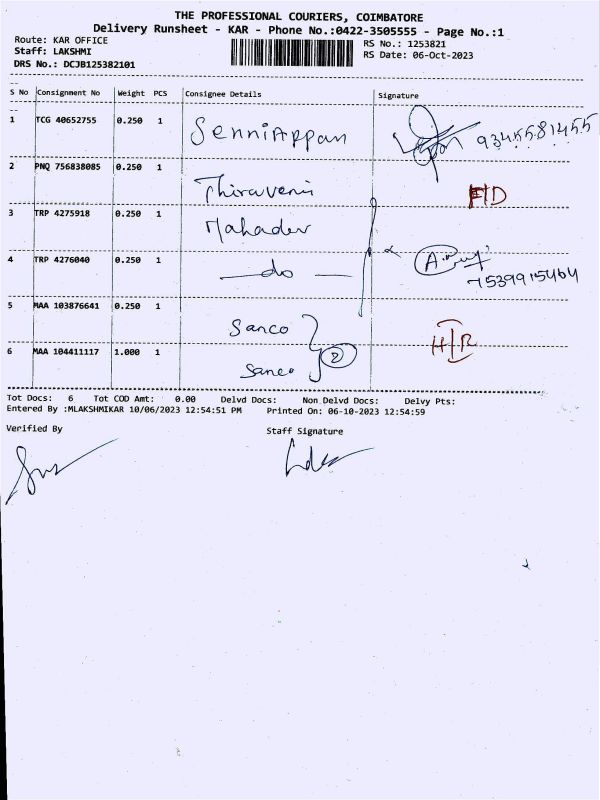 THE PROFESSIONAL COURIERS, COIMBATORE
Delivery Runsheet - KAR - Phone No.:0422-3505555 - Page No.:1
Route: KAR OFFICE RS No.: 1253821
Staff: LAKSHMI RS Date: 06-Oct-2023
DRS No.: DCJB125382101
S No Consignment No Weight PCS Consignee Details Signature
1 TCG 40652755 0.250 1 Senniappan 9345581455
2 PNQ 756838085 0.250 1 Thiruveni H/D
3 TRP 4275918 0.250 1 Mahadev
4 TRP 4276040 0.250 1 — do — 7539915464
5 MAA 103876641 0.250 1 Sanco
6 MAA 104411117 1.000 1 Sanco 2
Tot Docs: 6 Tot COD Amt: 0.00 Delvd Docs: Non Delvd Docs: Delvy Pts:
Entered By :MLAKSHMIKAR 10/06/2023 12:54:51 PM Printed On: 06-10-2023 12:54:59
Verified By Staff Signature